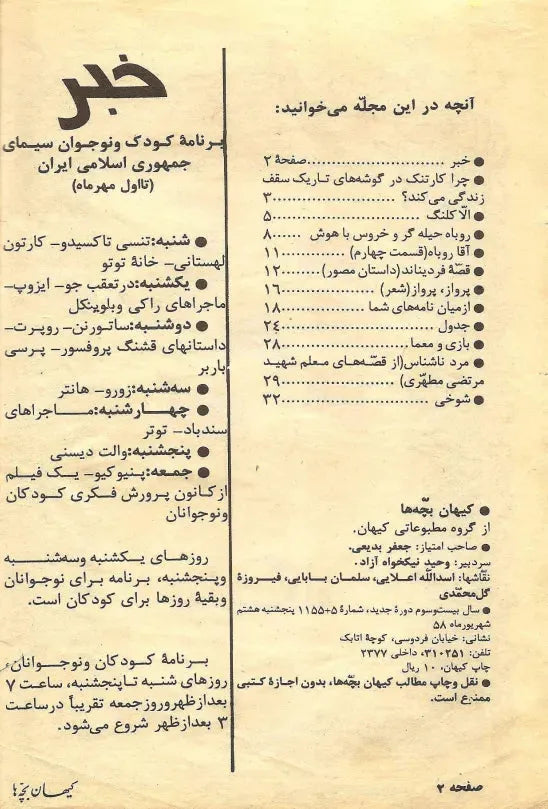 آنچه در این مجلّه می‌خوانید:
● خبر ..........................صفحهٔ ۲
● چرا کارتنک در گوشه‌های تاریک سقف
زندگی می‌کند؟ ..........................۳
● الّا کلنگ ..........................۵
● روباه حیله گر و خروس با هوش ........۸
● آقا روباه(قسمت چهارم)............۱۱
● قصّهٔ فردیناند(داستان مصور)........۱۲
● پرواز، پرواز(شعر)................۱۶
● ازمیان نامه‌های شما ................۱۸
● جدول ..........................۲۴
● بازی و معما......................۲۸
● مرد ناشناس(از قصّه‌های معلم شهید
مرتضی مطهّری) ....................۲۹
● شوخی ..........................۳۲
● کیهان بچّه‌ها
از گروه مطبوعاتی کیهان.
● صاحب امتیاز: جعفر بدیعی.
سردبیر: وحید نیکخواه آزاد.
نقاشها: اسدالله اعلایی، سلمان بابایی، فیروزهٔ
گل‌محمّدی
● سال بیست‌وسوم دورهٔ جدید، شمارهٔ ۵+۱۱۵۵ پنجشنبه هشتم
شهریورماه ۵۸
نشانی: خیابان فردوسی، کوچهٔ اتابک
تلفن: ۳۱۰۲۵۱، داخلی ۲۳۷۷
چاپ کیهان، ۱۰ ریال
● نقل وچاپ مطالب کیهان بچّه‌ها، بدون اجازهٔ کتبی
ممنوع است.
صفحه ۲
خبر
برنامهٔ کودک ونوجوان سیمای
جمهوری اسلامی ایران
(تااول مهرماه)
● شنبه:تنسی تاکسیدو- کارتون
لهستانی- خانهٔ توتو
● یکشنبه:درتعقب جو- ایزوپ-
ماجراهای راکی وبلوینکل
● دوشنبه:ساتورنن- روپرت-
داستانهای قشنگ پروفسور- پرسی
باربر
● سه‌شنبه:زورو- هانتر
● چهارشنبه:ماجراهای
سندباد- توتر
● پنجشنبه:والت دیسنی
● جمعه:پنیوکیو- یک فیلم
ازکانون پرورش فکری کودکان
ونوجوانان
روزهای یکشنبه وسه‌شنبه
وپنجشنبه، برنامه برای نوجوانان
وبقیهٔ روزها برای کودکان است.
برنامهٔ کودکان ونوجوانان،
روزهای شنبه تاپنجشنبه، ساعت ۷
بعدازظهروروزجمعه تقریباً درساعت
۳ بعدازظهر شروع می‌شود.
کیهان بچّه‌ها